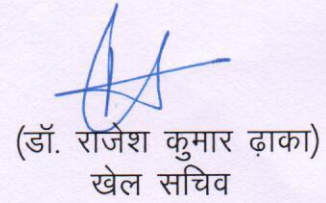 (डॉ. राजेश कुमार ढ़ाका)
खेल सचिव